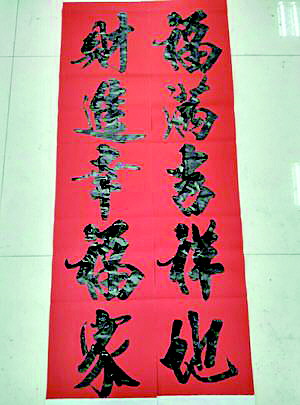 福满吉祥地
財進幸福家